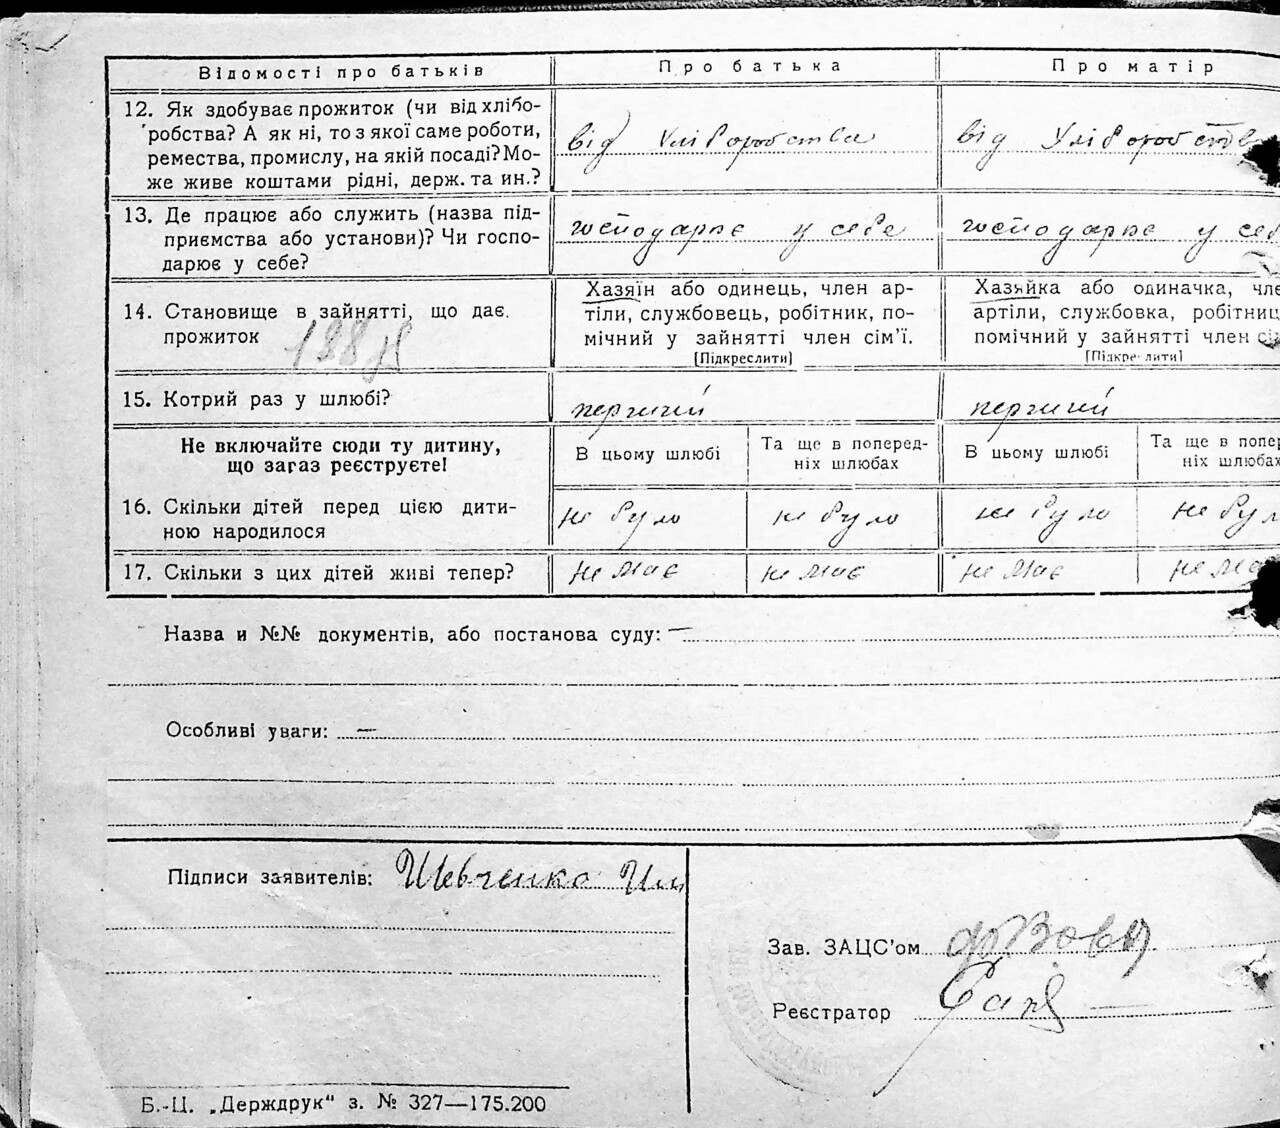 Відомості про батьків Про батька Про матір
12. Як здобуває прожиток (чи від хлібо-
робства? А як ні, то з якої саме роботи,
ремества, промислу, на якій посаді? Мо-
же живе коштами рідні, держ. та ин.?
від хліборобства від хліборобств
13. Де працює або служить (назва під-
приємства або установи)? Чи госпо-
дарює у себе?
господарює у себе господарює у себ
14. Становище в зайнятті, що дає
прожиток
Хазяїн або одинець, член ар-
тіли, службовець, робітник, по-
мічний у зайнятті член сім'ї.
[Підкреслити]
Хазяйка або одиначка, чле
артіли, службовка, робітниц
помічний у зайнятті член сі
[Підкреслити]
15. Котрий раз у шлюбі? перший перший
Не включайте сюди ту дитину,
що зараз реєструєте!
В цьому шлюбі
Та ще в поперед-
ніх шлюбах
В цьому шлюбі
Та ще в попер
ніх шлюбах
16. Скільки дітей перед цією дити-
ною народилося
не було не було не було не бул
17. Скільки з цих дітей живі тепер? не має не має не має не ма
Назва и №№ документів, або постанова суду: —
Особливі уваги: —
Підписи заявителів: Шевченко
Зав. ЗАЦС'ом
Реєстратор
Б.-Ц. „Держдрук" з. № 327—175.200